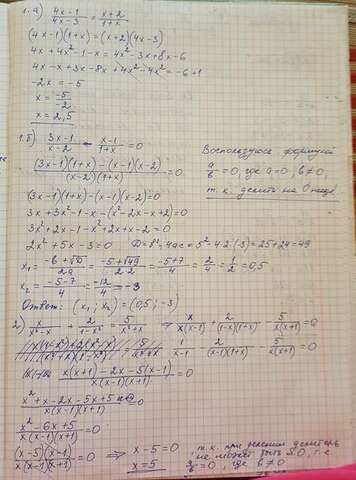 1.а) (4x-1)/(4x-3) = (x+2)/(1+x)
(4x-1)(1+x) = (x+2)(4x-3)
4x + 4x² - 1 - x = 4x² - 3x + 8x - 6
4x - x + 3x - 8x + 4x² - 4x² = -6 + 1
-2x = -5
x = -5/-2
x = 2,5
1.б) (3x-1)/(x-2) - (x-1)/(1+x) = 0
Воспользуюсь формулой
((3x-1)(1+x) - (x-1)(x-2))/((x-2)(1+x)) = 0
a/b = 0, где a=0, b≠0,
т.к. делить на 0 нельзя
(3x-1)(1+x) - (x-1)(x-2) = 0
3x + 3x² - 1 - x - (x² - 2x - x + 2) = 0
3x² + 2x - 1 - x² + 2x + x - 2 = 0
2x² + 5x - 3 = 0 D = b² - 4ac = 5² - 4·2·(-3) = 25 + 24 = 49
x₁ = (-b + √D)/2a = (-5 + √49)/2·2 = (-5+7)/4 = 2/4 = 1/2 = 0,5
x₂ = (-5-7)/4 = -12/4 = -3
Ответ: (x₁; x₂) = (0,5; -3)
2) x/(x²-x) + 2/(1-x²) - 5/(x²+x) ⇒ x/(x(x-1)) + 2/((1-x)(1+x)) - 5/(x(x+1)) = 0
1/(x-1) - 2/((x-1)(1+x)) - 5/(x(x+1)) = 0
(x(x+1) - 2x - 5(x-1))/(x(x-1)(x+1)) = 0
(x² + x - 2x - 5x + 5)/(x(x-1)(x+1)) = 0
(x² - 6x + 5)/(x(x-1)(x+1)) = 0
((x-5)(x-1))/(x(x-1)(x+1)) = 0 ⇒ x - 5 = 0
x = 5
т.к. при делении делитель
не может быть = 0, т.е.
a/b = 0, где b ≠ 0